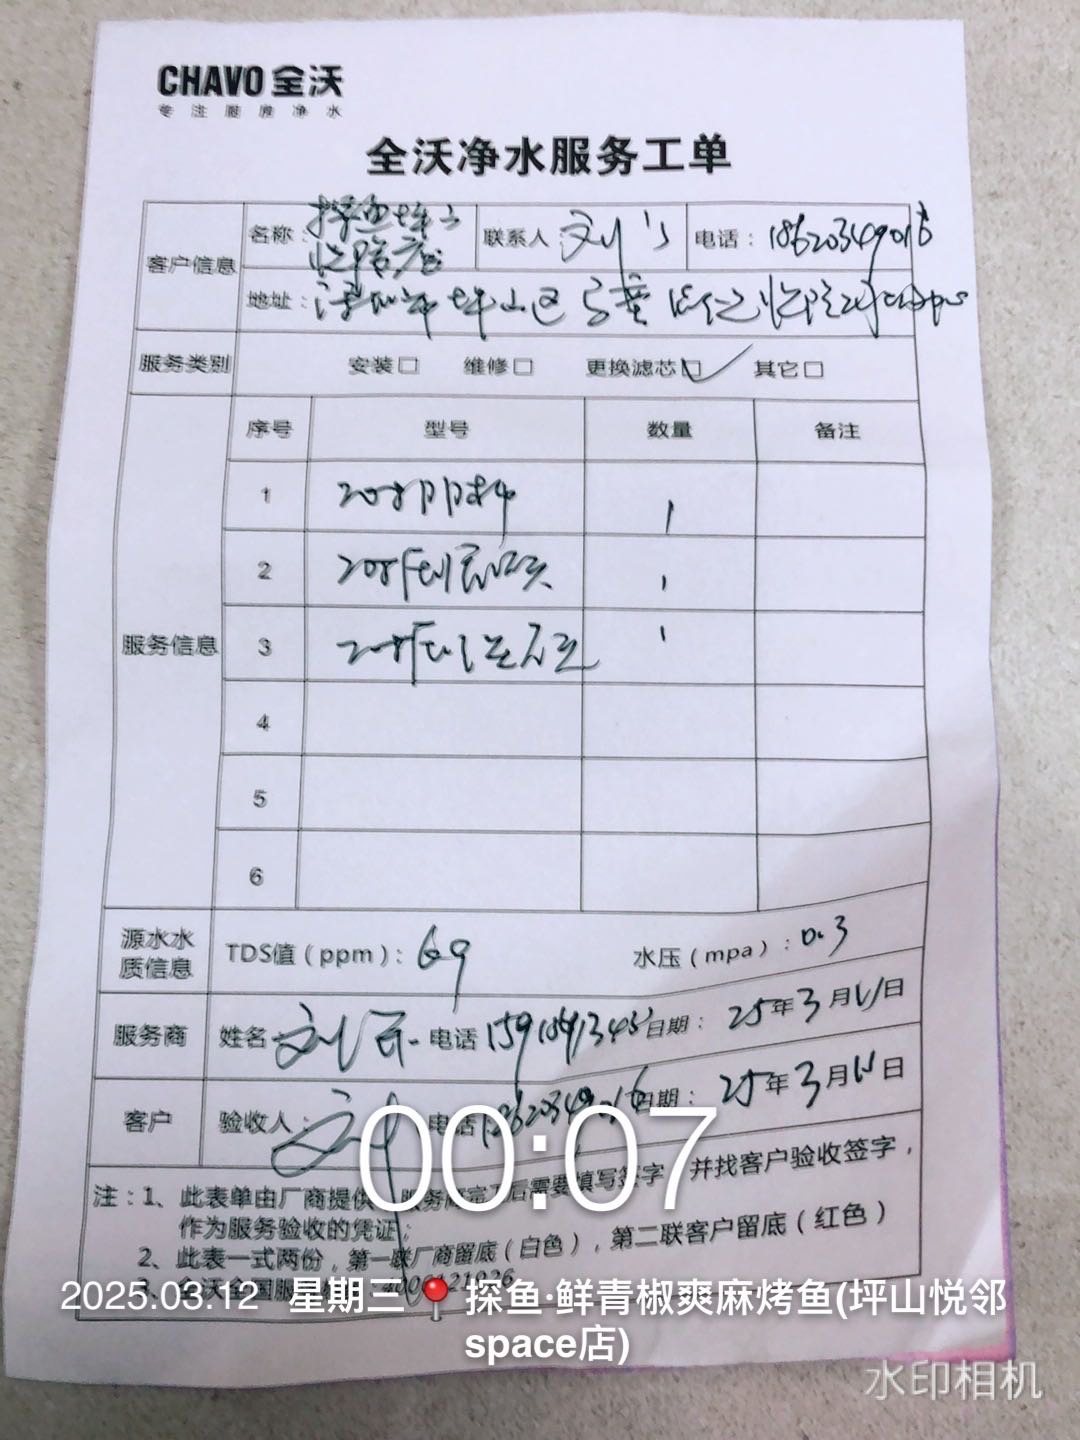 CHAVO 全沃
专注厨房净水
全沃净水服务工单
客户信息 名称: 探鱼坪山 悦邻店 联系人: 刘 电话: 18620349016
地址: 深圳市坪山区 悦邻
服务类别 安装□ 维修□ 更换滤芯□✓ 其它□
服务信息 序号 型号 数量 备注
1 1
2 1
3 1
4
5
6
源水水质信息 TDS值(ppm): 69 水压(mpa): 0.3
服务商 姓名: 刘 电话 日期: 25年3月11日
客户 验收人: 刘 电话 18620349016 日期: 25年3月11日
00:07
注:1、此表单由厂商提供,服务商完工后需要填写签字,并找客户验收签字,
作为服务验收的凭证;
2、此表一式两份,第一联厂商留底(白色),第二联客户留底(红色)
3、全沃全国服 4006121026
2025.03.12 星期三 探鱼·鲜青椒爽麻烤鱼(坪山悦邻
space店)
水印相机